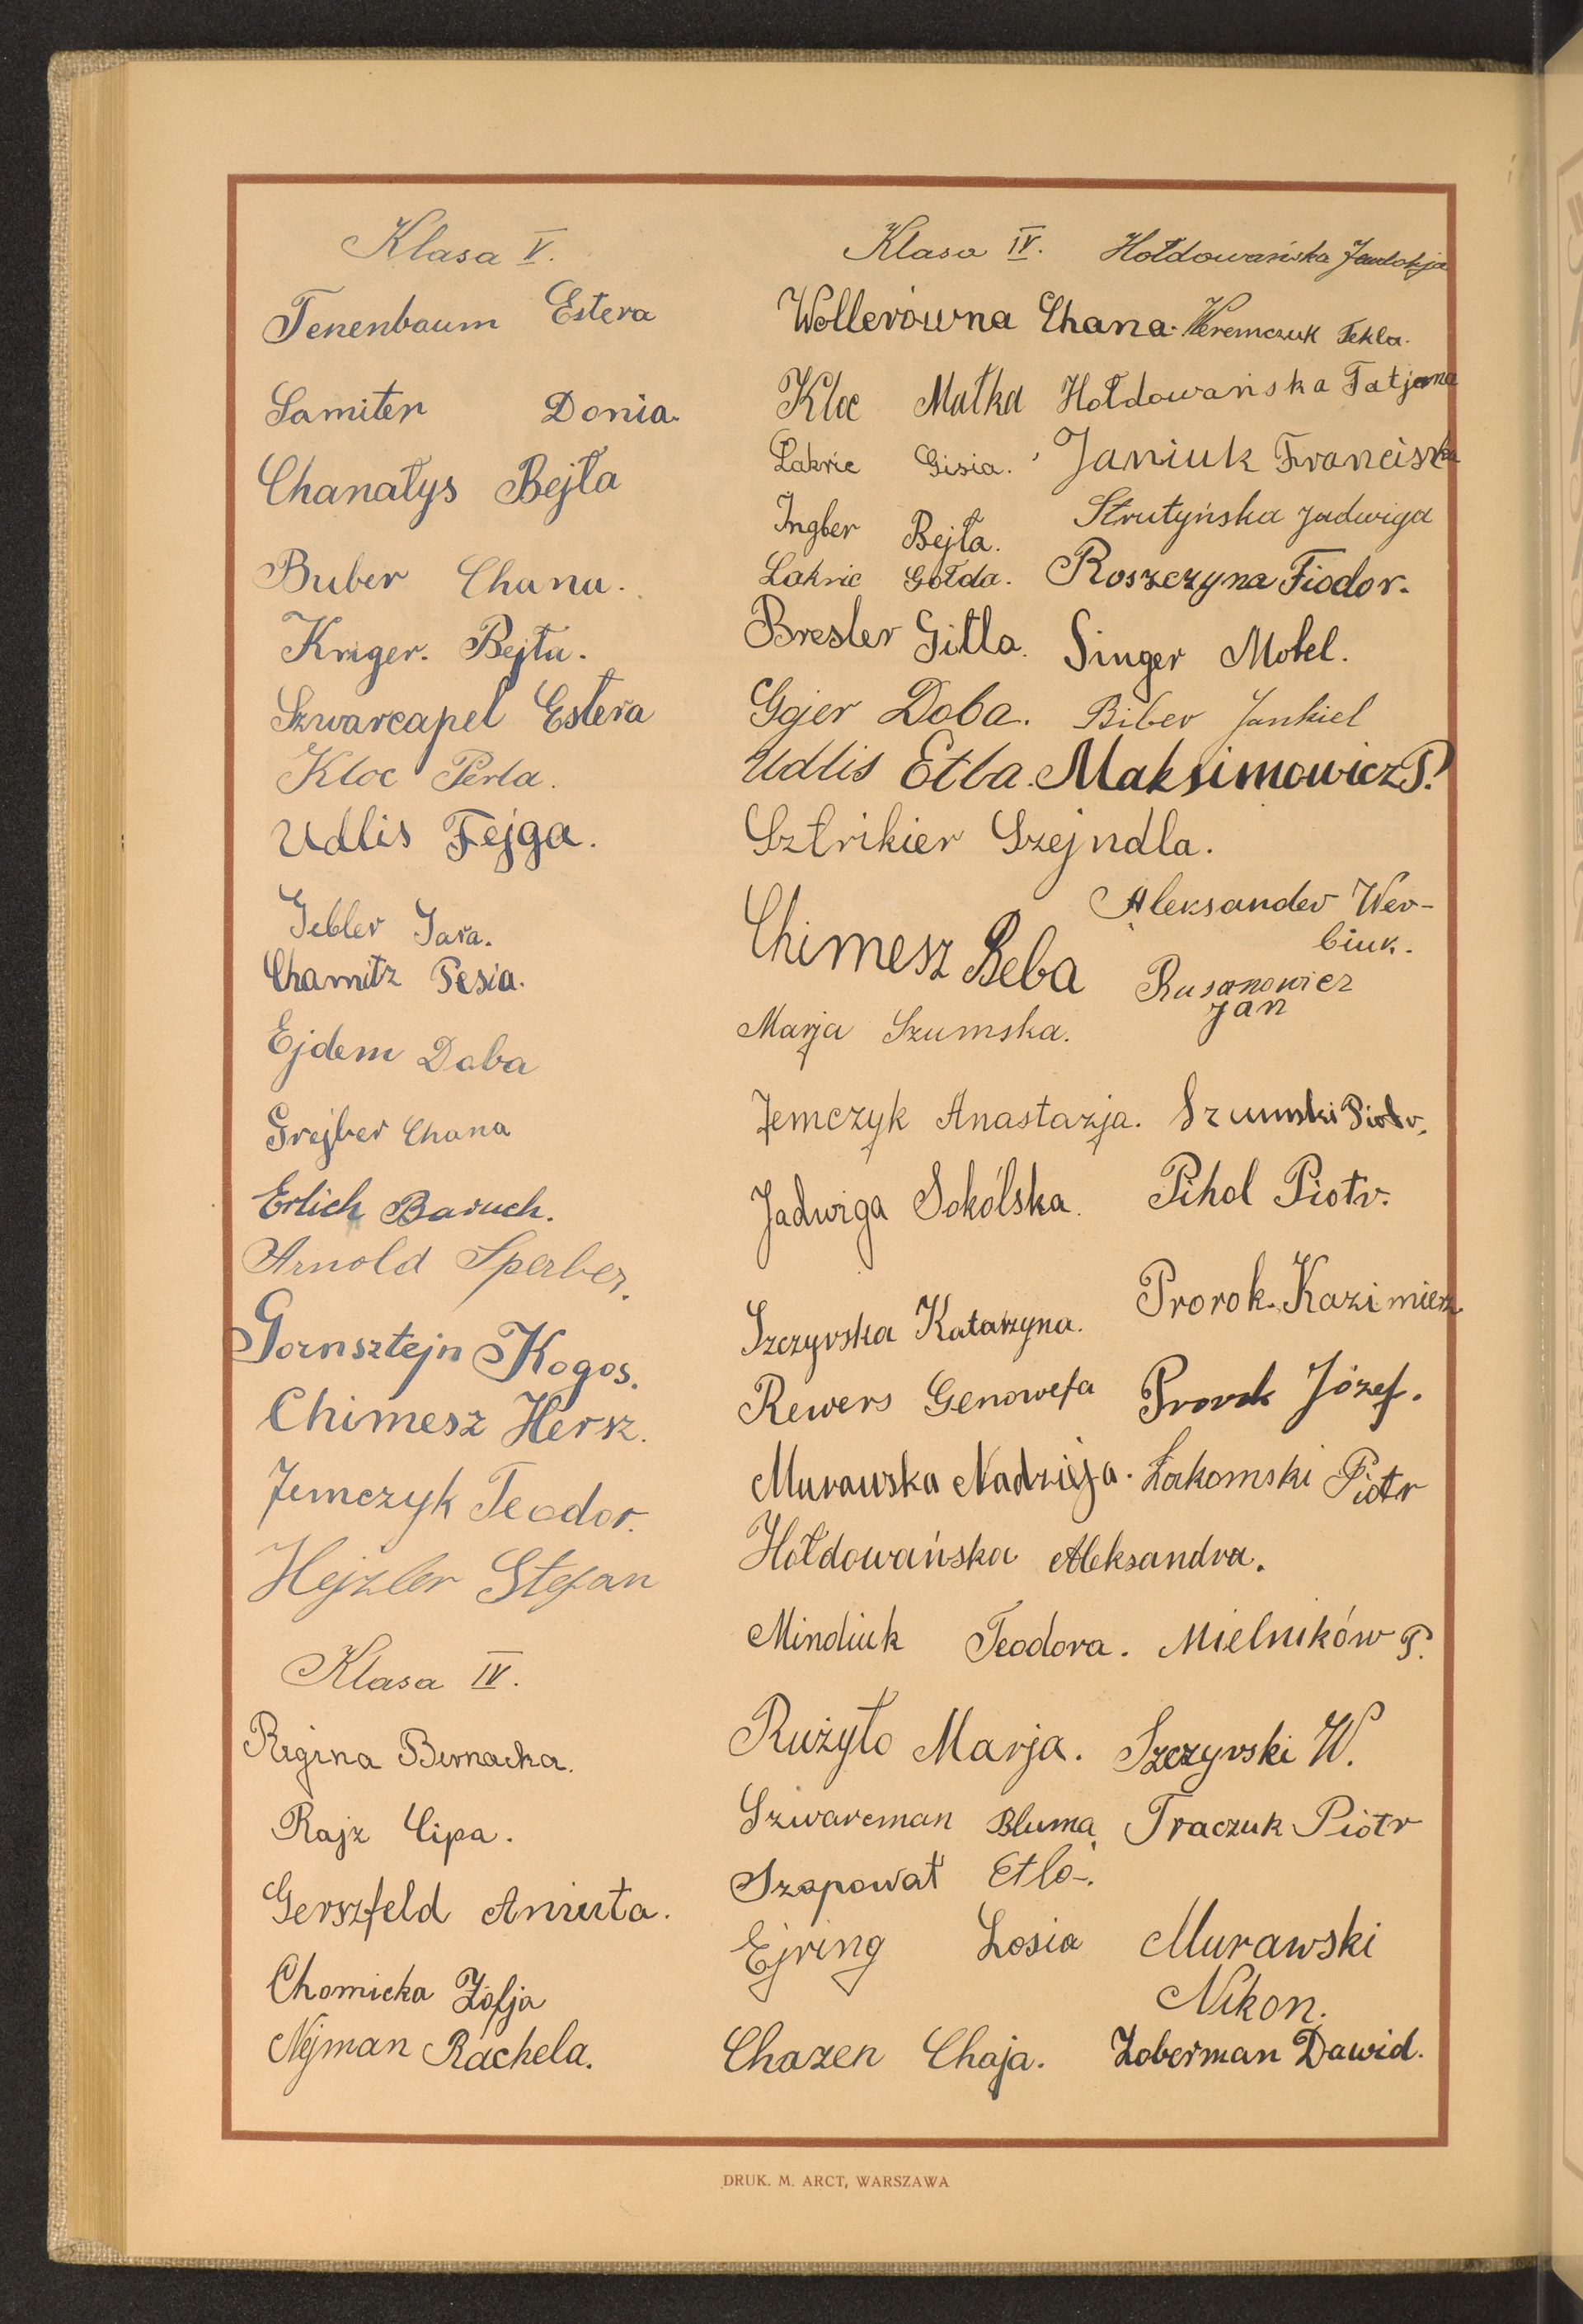 Klasa V.
Tenenbaum Estera
Samiter Donia.
Chanatys Bejła
Buber Chana.
Kriger. Bejła.
Szwarcapel Estera
Kloc Perla.
Udlis Fejga.
Gebler Sara.
Chamitz Pesia.
Ejdem Doba
Grejber Chana
Erlich Baruch.
Arnold Sperber.
Gornsztejn Kogos.
Chimesz Hersz.
Jemczyk Teodor.
Hejzler Stefan
Klasa IV.
Regina Bernacka.
Rajz Cipa.
Gerszfeld Aniuta.
Chomicka Zofja
Nejman Rachela.
Klasa IV.
Wollerówna Chana.
Kloc Małka
Lakric Gisia.
Ingber Bejła.
Lakric Gołda.
Bresler Gitla.
Gjer Doba.
Udlis Etla.
Sztrikier Szejndla.
Chimesz Beba
Marja Szumska.
Jemczyk Anastazja.
Jadwiga Sokólska.
Szczyrska Katarzyna.
Rewers Genowefa
Murawska Nadzieja.
Hołdowańska Aleksandra.
Mindiuk Teodora.
Rużyło Marja.
Szwarcman Bluma
Szapował Etla.
Ejring Losia
Chazen Chaja.
Hołdowańska Jewdokja
Weremczuk Tekla.
Hołdowańska Tatjana
Janiuk Franciszka
Strutyńska Jadwiga
Roszczyna Fiodor.
Singer Motel.
Biber Jankiel
Maksimowicz P.
Aleksander Wer-
biuk.
Rusanowicz
Jan
Szumski Piotr.
Pihol Piotr.
Prorok Kazimierz
Prorok Józef.
Łakomski Piotr
Mielników P.
Szczyrski W.
Traczuk Piotr
Murawski
Nikon.
Zoberman Dawid.
DRUK. M. ARCT, WARSZAWA